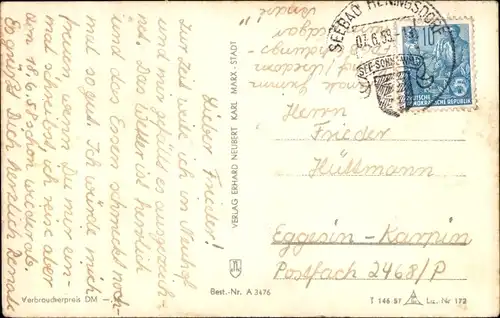 Lieber Frieder!
Zur Zeit weile ich in Neuhof
und mir gefällt es ausgezeich-
net. Das Wetter ist herrlich
und Essen schmeckt noch-
mal so gut. Ich würde mich
freuen wenn Du mir ein-
mal schreibst, ich reise aber
am 18.6.58 schon wieder ab.
Es grüßt Dich herzlich Renate
Verbraucherpreis DM —,
VERLAG ERHARD NEUBERT KARL-MARX-STADT
Best.-Nr. A 3476
SEEBAD HERINGSDORF
10
DEUTSCHE
DEMOKRATISCHE REPUBLIK
Herrn
Frieder
Hüttmann
Eggesin-Karpin
Postfach 2468/P
T 146 57 Lu. Nr 172